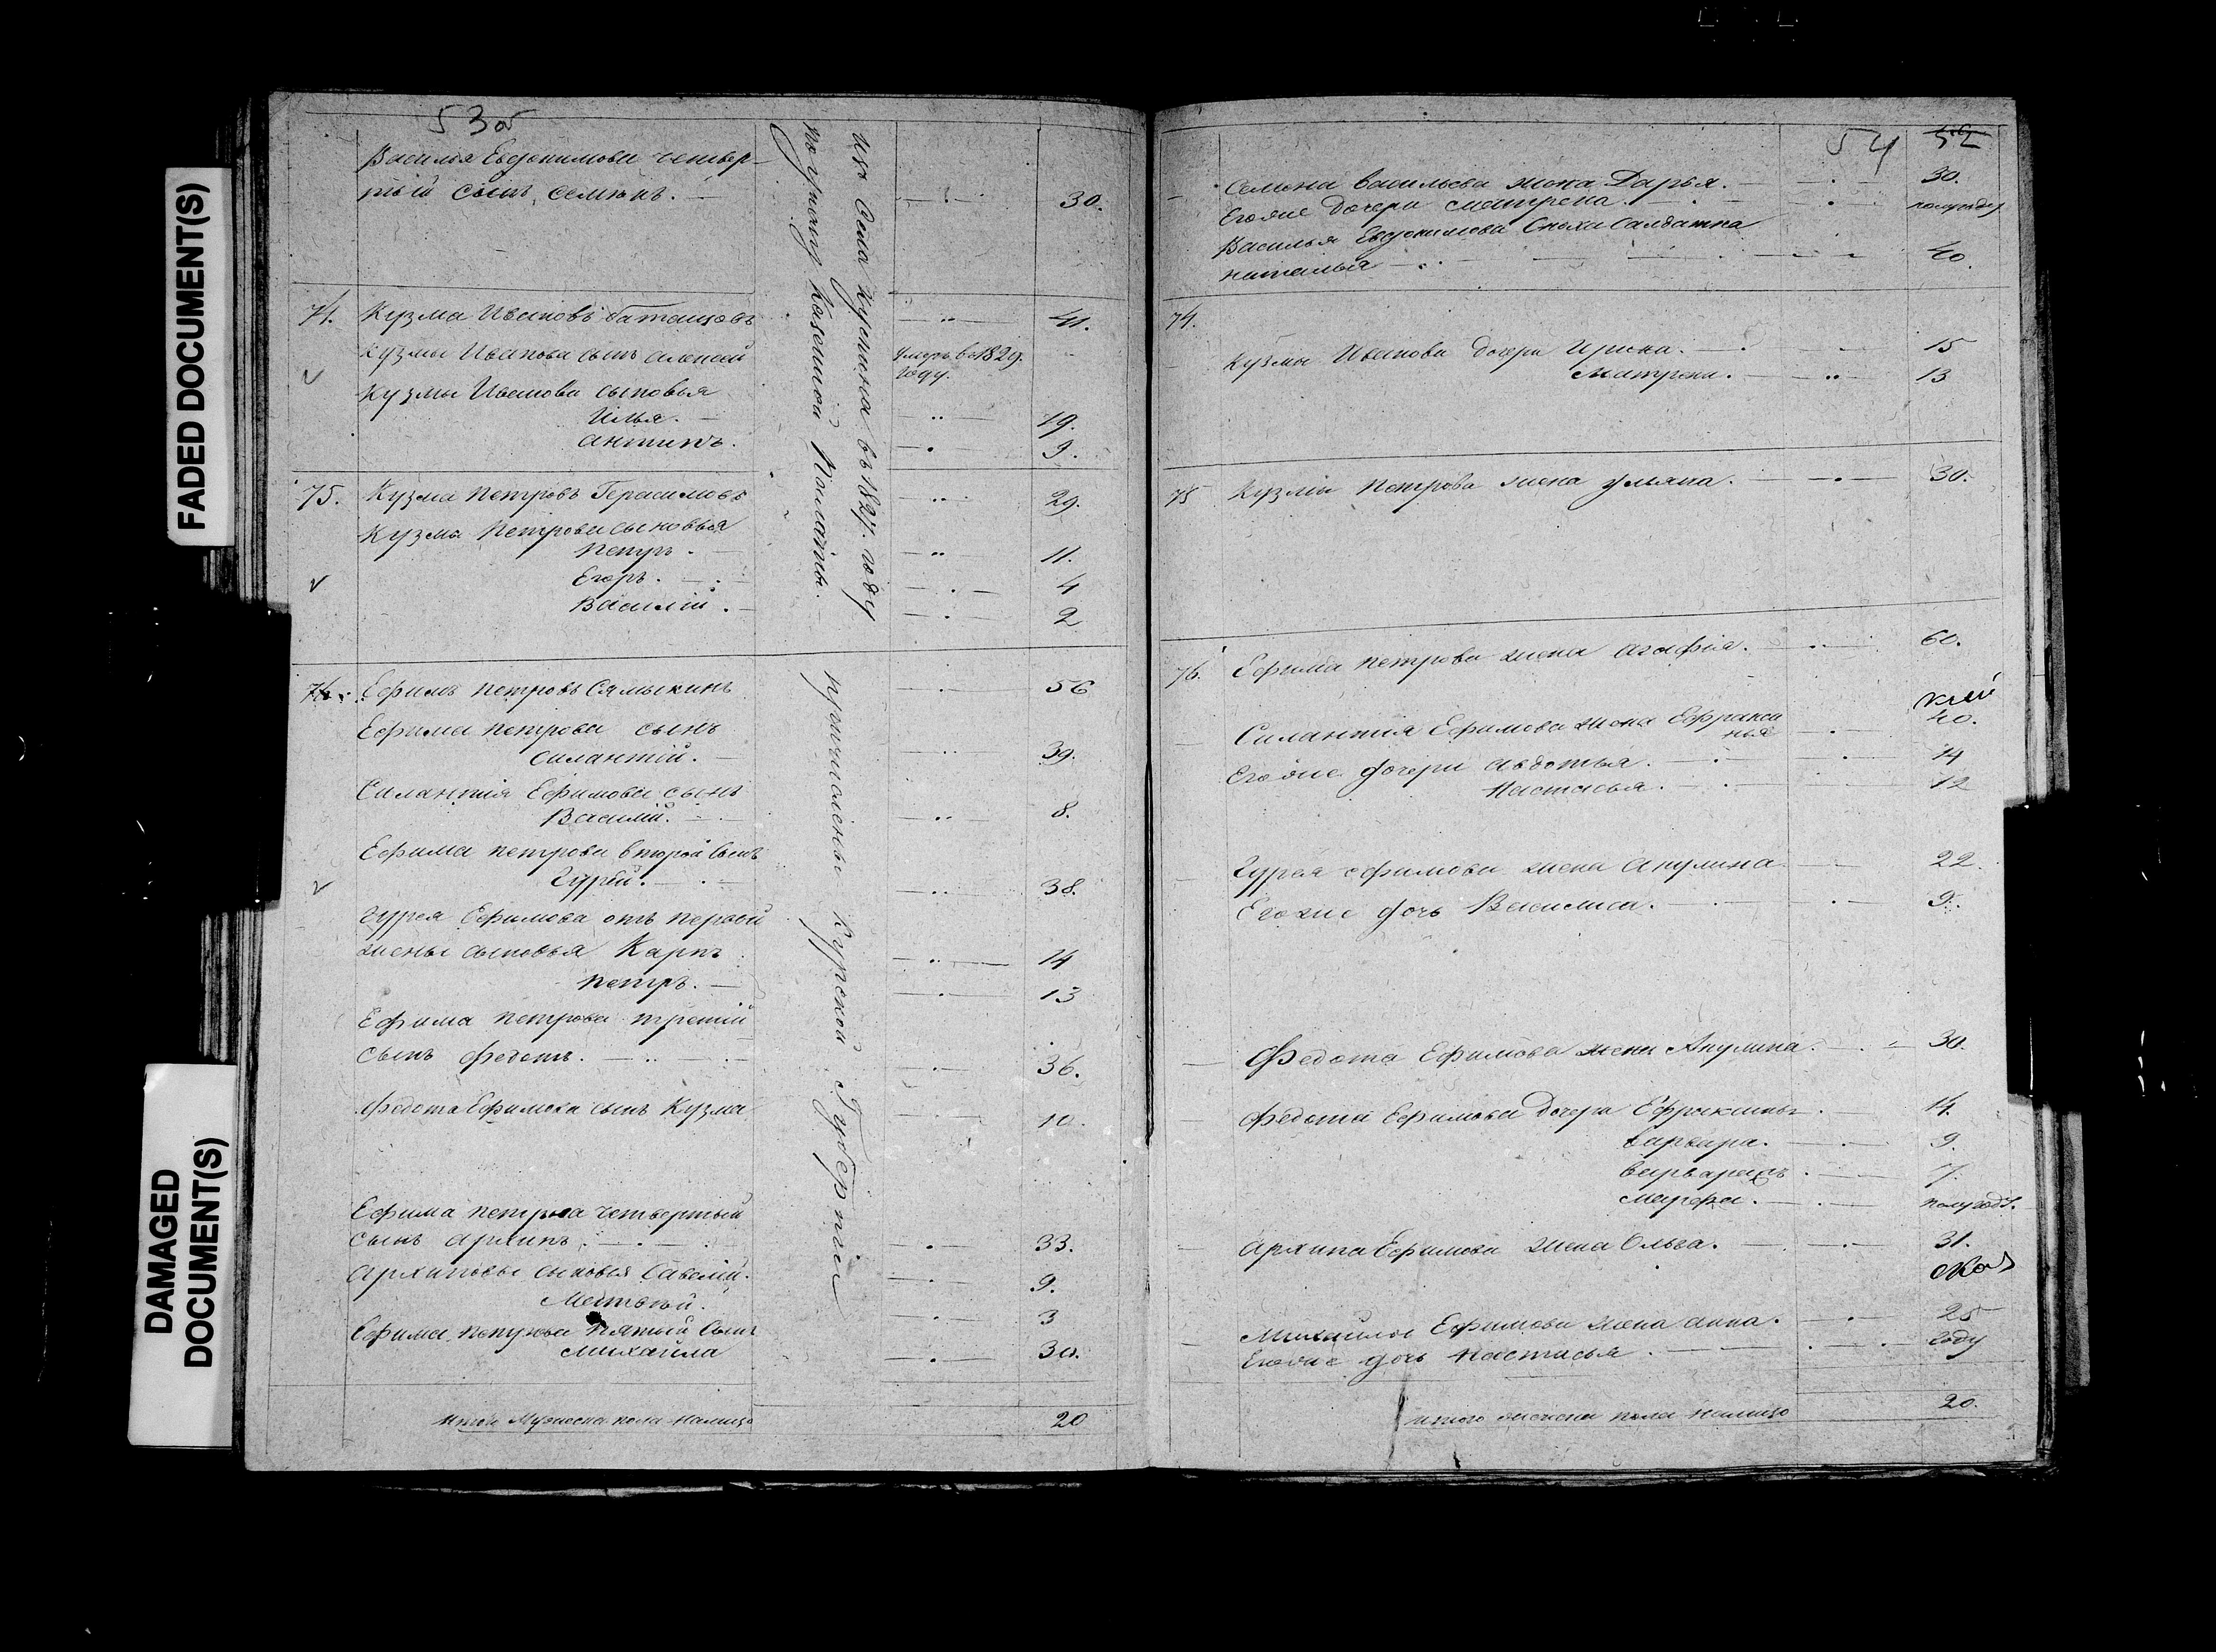 FADED DOCUMENT(S)
DAMAGED DOCUMENT(S)
53об
Василья Евдокимова четвер-
тый сынъ, Семионъ. 30.
74. Кузма Ивановъ 41.
Кузмы Иванова сынъ алексей умеръ в 1829. году.
Кузмы Иванова сыновья
Илья. 19.
антипъ. 9.
75. Кузма Петровъ Герасимовъ 29.
Кузмы Петрова сыновья
Петръ. 11.
Егоръ. 4
Василій. 2
76. Ефимъ Петровъ Сямыкинъ 56
Ефима Петрова сынъ
Силантій. 39.
Силантія Ефимова сынъ
Василій. 8.
Ефима Петрова второй сынъ
Гурей. 38.
Гурея Ефимова отъ первой
жены сыновья Карпъ 14
Петръ. 13
Ефима Петрова третій
сынъ Федотъ. 36.
Федота Ефимова сынъ Кузма 10.
Ефима Петрова четвертый
сынъ архипъ. 33.
архиповы сыновья Савелій. 9.
Матвей. 3
Ефима Петрова пятый сынъ
Михайла 30.
итого мужеска пола налицо 20
изъ Села въ 1827. году
по указу Казенной Палаты.
причислены Курской Губерніи
54 52
Семиона васильева жена Дарья. 30.
Егоже дочери Матрена. полугоду
Василья Евдокимова Сноха Салдатка
наталья 40.
74.
Кузмы Иванова дочери Ирина. 15
Матрена. 13
75 Кузмы Петрова жена ульяна. 30.
76. Ефима Петрова жена агафия. 60.
Силантія Ефимова жена Ефракси
нья 40.
Егоже дочери авдотья. 14
Настасья. 12
Гурея Ефимова жена акулина 22.
Егоже дочь Василиса. 9.
Федота Ефимова жена Акулина. 30.
Федота Ефимова дочери Ефраксинья. 14.
варвара. 9.
7.
марфа. полугоду.
архипа Ефимова жена Ольга. 31.
Михайлы Ефимова жена анна. 25
Егоже дочь Настасья году
итого женска пола налицо 20.